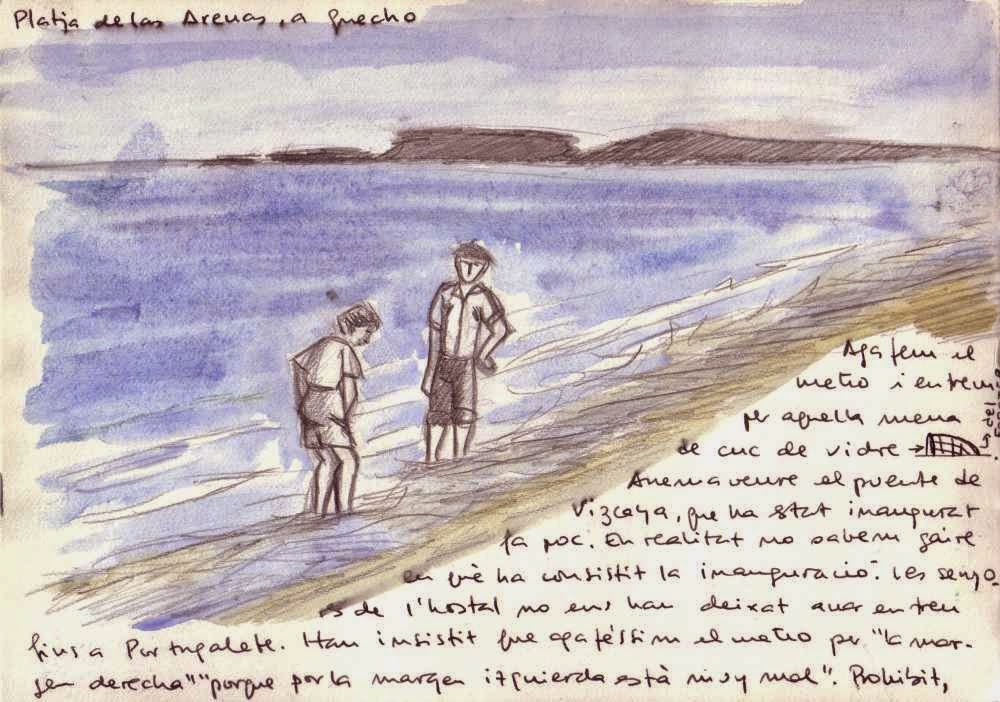 Platja de las Arenas, a Guecho
Agafem el
metro i entrem
per aquella mena
de cuc de vidre →
del
Anem a veure el puente de
Vizcaya, que ha stat inaugurat
fa poc. En realitat no sabem gaire
en què ha consistit la inauguració. Les senyo-
es de l'hostal no ens han deixat anar en tren
fins a Portugalete. Han insistit que agaféssim el metro per "la mar-
gen derecha" "porque por la margen izquierda està muy mal". Prohibit,